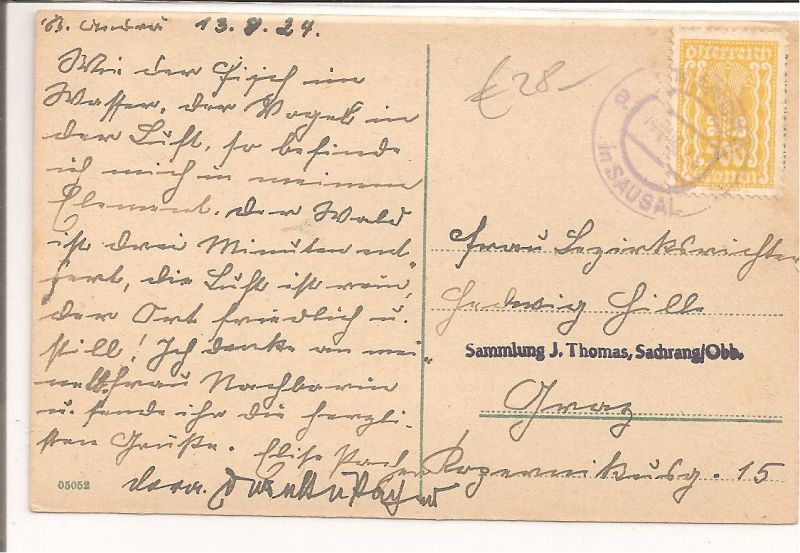 St. Andrä 13.9.24.
Wie der Fisch im
Wasser, der Vogel in
der Luft, so befinde
ich mich in meinem
Element. Der Wald
ist drei Minuten ent-
fernt, die Luft ist rein,
der Ort friedlich u.
still! Ich denke an mei-
ne lb. Frau Nachbarin
u. sende ihr die herzli-
chsten Grüße. Elise
05052
£ 28-
österreich
Kronen
a
in SAUSAL
Frau Bezirksrichter
Hedwig Hille
Sammlung J. Thomas, Sachrang/Obb.
Graz
Kopernikusg. 15